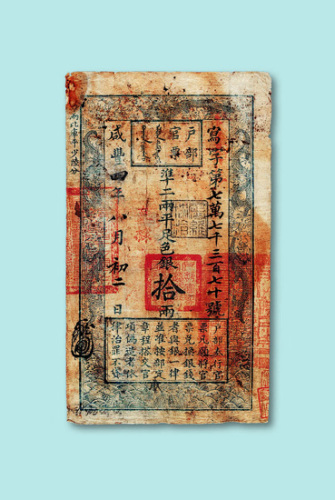 寫字第七萬七千三百七十號
戶部
官票
準二兩平足色銀拾兩
咸豐四年八月初二日
戶部奏行官
票凡願將官
票兌換銀錢
者與銀一律
並准按部定
章程搭交官
項偽造者依
律治罪不貸